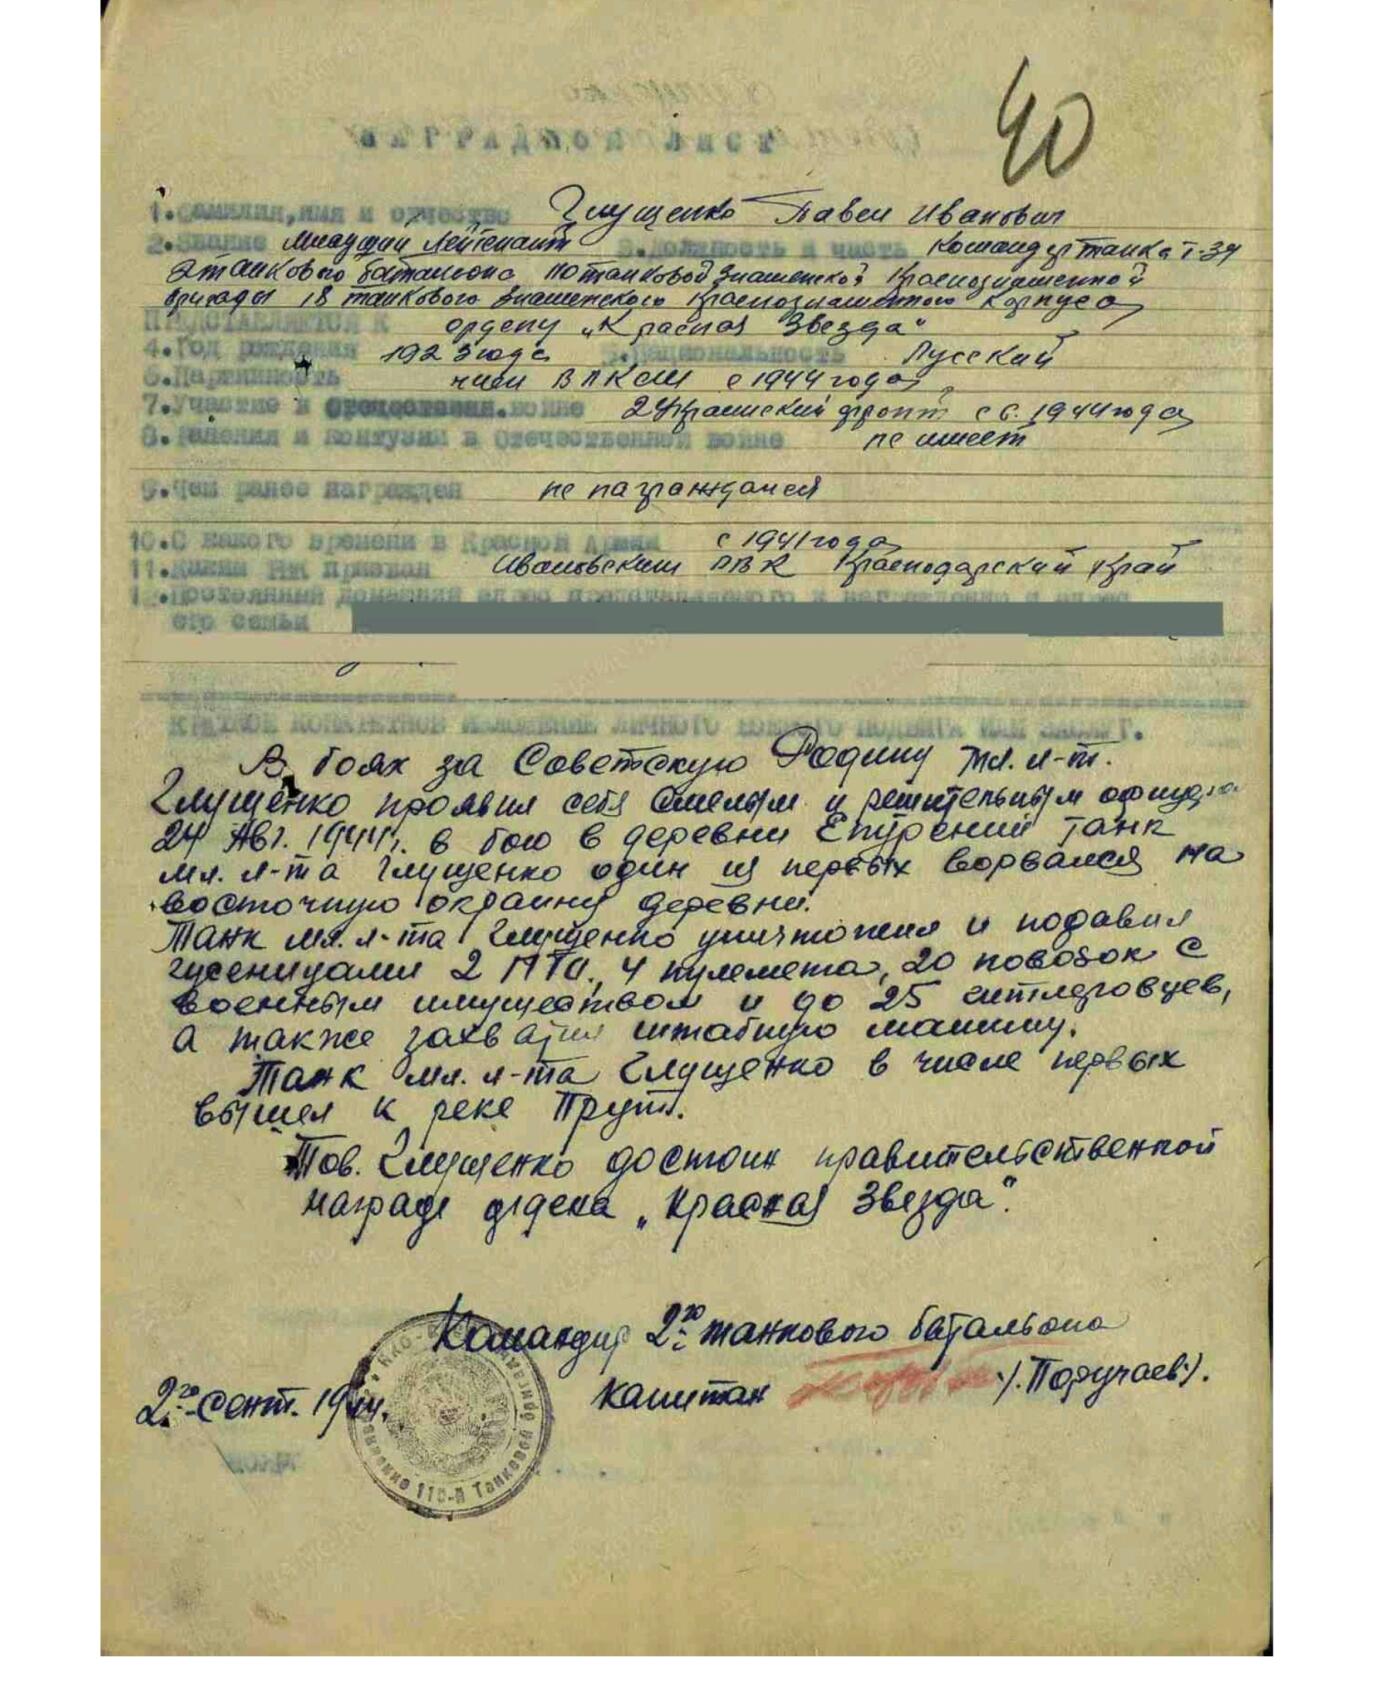 40
НАГРАДНОЙ ЛИСТ
1.Фамилия,имя и отчество Глущенко Павел Иванович
2.Звание Младший Лейтенант 3.Должность и часть Командир танка Т-34
2 танкового батальона 110 танковой Знаменской Краснознаменной
бригады 18 танкового Знаменского Краснознаменного Корпуса
ПРЕДСТАВЛЯЕТСЯ К ордену „Красная Звезда"
4.Год рождения 1923 года 5.Национальность Русский
6.Партийность член ВЛКСМ с 1944 года
7.Участие в отечествен.войне 2 Украинский фронт с 6. 1944 года
8.Ранения и контузии в Отечественной войне не имеет
9.Чем ранее награжден не награждался
10.С какого времени в Красной Армии с 1941 года
11.Каким РВК призван Ивановским РВК Краснодарский Край
12.Постоянный домашний адрес представляемого к награждению и адрес
его семьи
КРАТКОЕ КОНКРЕТНОЕ ИЗЛОЖЕНИЕ ЛИЧНОГО БОЕВОГО ПОДВИГА ИЛИ ЗАСЛУГ.
В боях за Советскую Родину мл. л-т.
Глущенко проявил себя смелым и решительным офицер
24 Авг. 1944г. в бою в деревни Епурений танк
мл. л-та Глущенко один из первых ворвался на
восточную окраину деревни.
Танк мл. л-та Глущенко уничтожил и подавил
гусеницами 2 ПТО, 4 пулемета, 20 повозок с
военным имуществом и до 25 гитлеровцев,
а также захватил штабную машину.
Танк мл. л-та Глущенко в числе первых
вышел к реке Прут.
Тов. Глущенко достоин правительственной
награде ордена „Красная Звезда".
Командир 2го танкового батальона
капитан /.Поручаев./.
2го сент. 1944.
НКО- Управление 110-й Танковой бригады